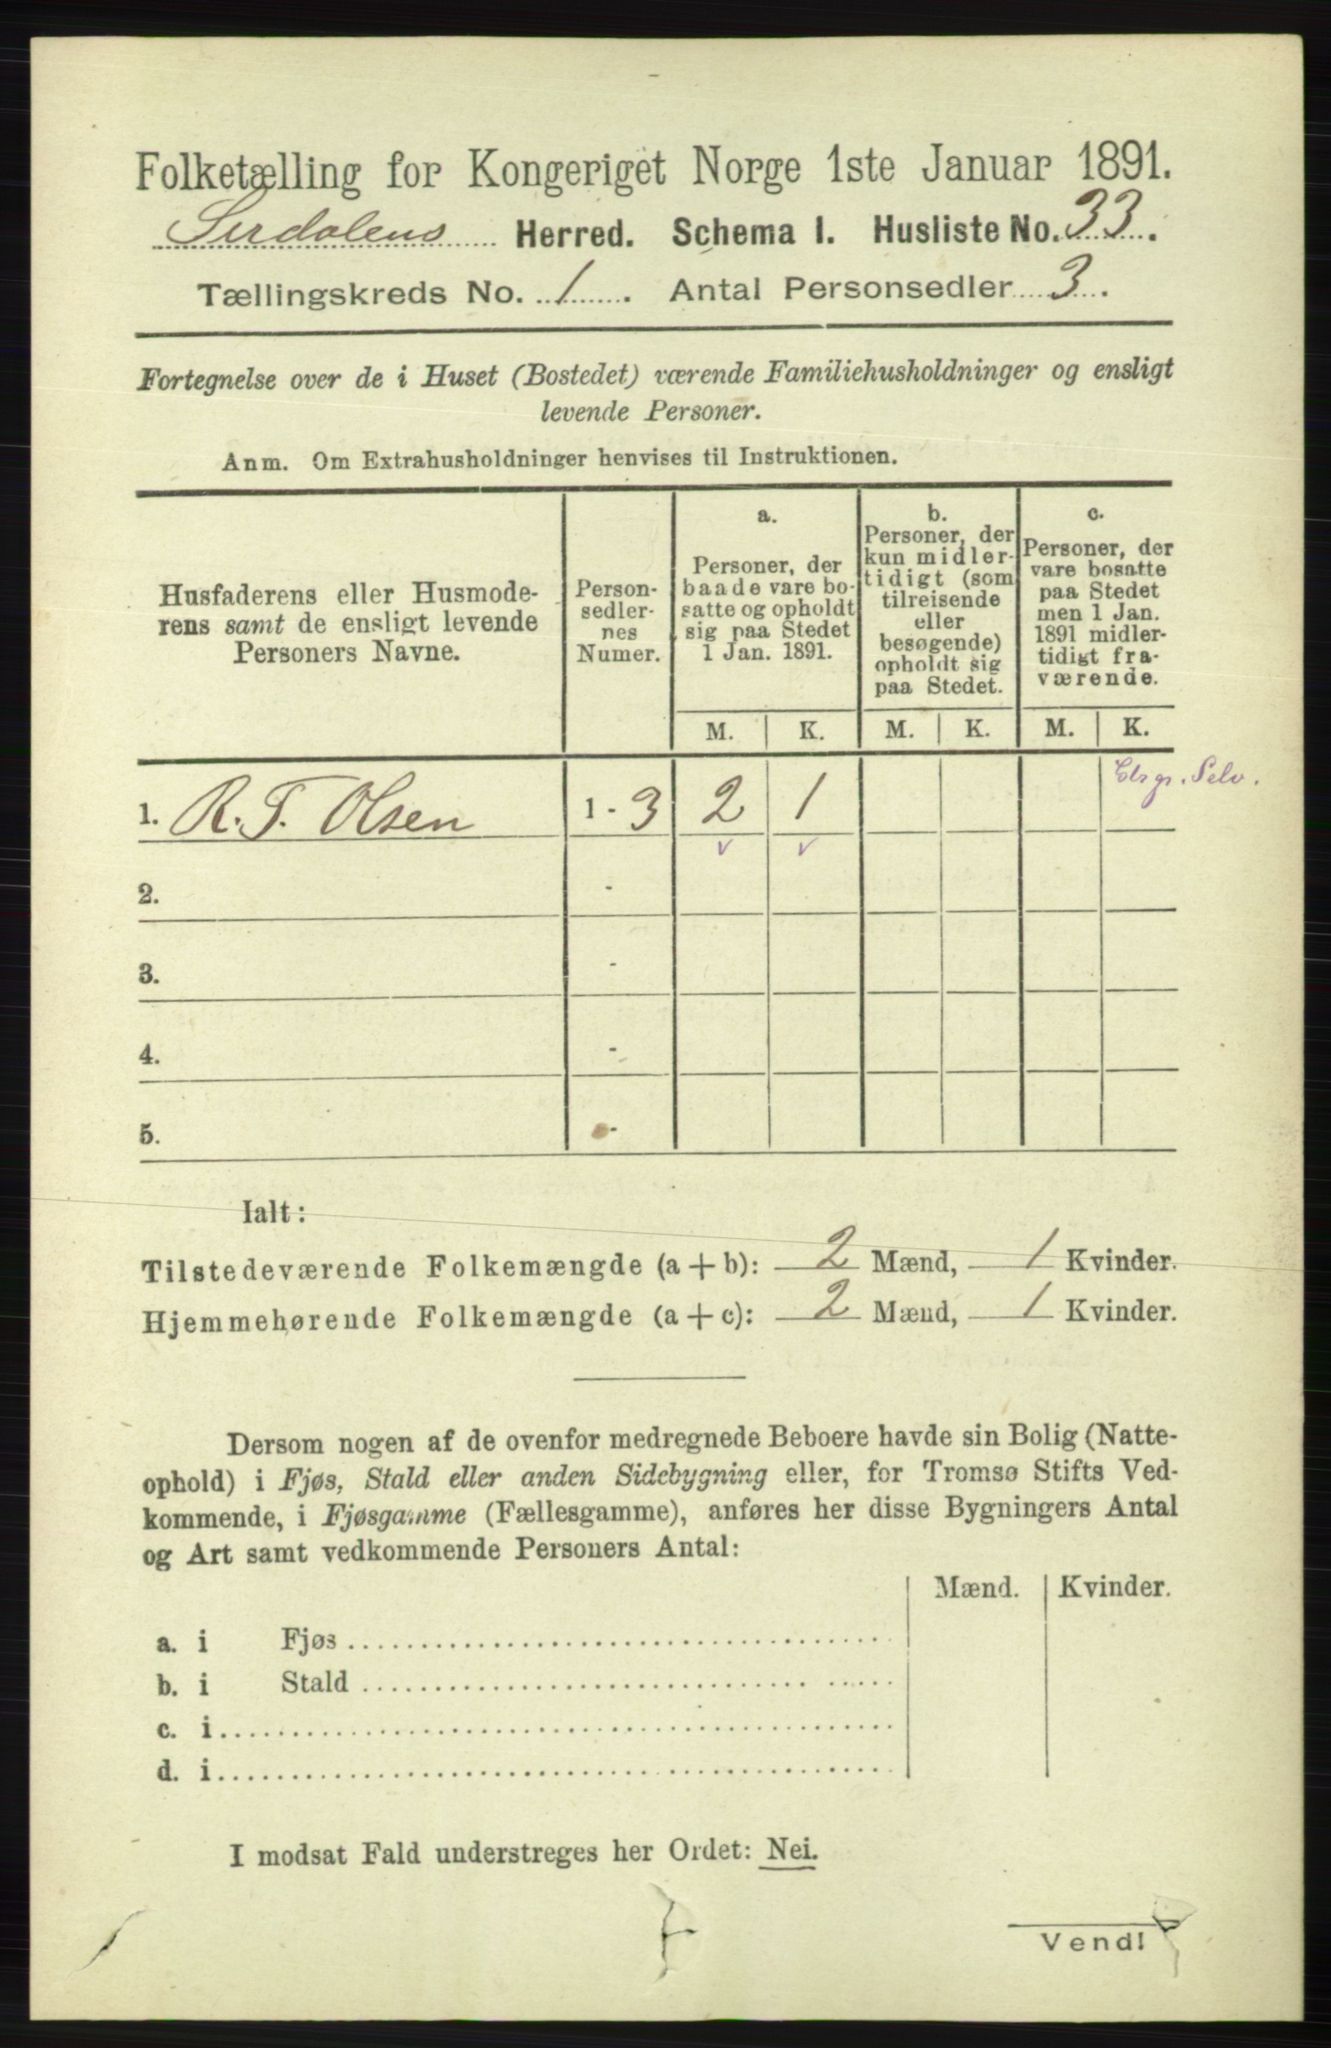 Folketælling for Kongeriget Norge 1ste Januar 1891.
Sirdalens Herred. Schema I. Husliste No. 33.
Tællingskreds No. 1. Antal Personsedler 3.
Fortegnelse over de i Huset (Bostedet) værende Familiehusholdninger og ensligt
levende Personer.
Anm. Om Extrahusholdninger henvises til Instruktionen.
Husfaderens eller Husmode-
rens samt de ensligt levende
Personers Navne.
Person-
sedler-
nes
Numer.
a.
Personer, der
baade vare bo-
satte og opholdt
sig paa Stedet
1 Jan. 1891.
b.
Personer, der
kun midler-
tidigt (som
tilreisende
eller
besøgende)
opholdt sig
paa Stedet.
c.
Personer, der
vare bosatte
paa Stedet
men 1 Jan.
1891 midler-
tidigt fra-
værende.
M. K. M. K. M. K.
1. R. T. Olsen 1 - 3 2 1 Selv.
v v
2. -
3. -
4. -
5. -
Ialt:
Tilstedeværende Folkemængde (a + b): 2 Mænd, 1 Kvinder.
Hjemmehørende Folkemængde (a + c): 2 Mænd, 1 Kvinder.
Dersom nogen af de ovenfor medregnede Beboere havde sin Bolig (Natte-
ophold) i Fjøs, Stald eller anden Sidebygning eller, for Tromsø Stifts Ved-
kommende, i Fjøsgamme (Fællesgamme), anføres her disse Bygningers Antal
og Art samt vedkommende Personers Antal:
Mænd. Kvinder.
a. i Fjøs
b. i Stald
c. i
d. i
I modsat Fald understreges her Ordet: Nei.
Vend!